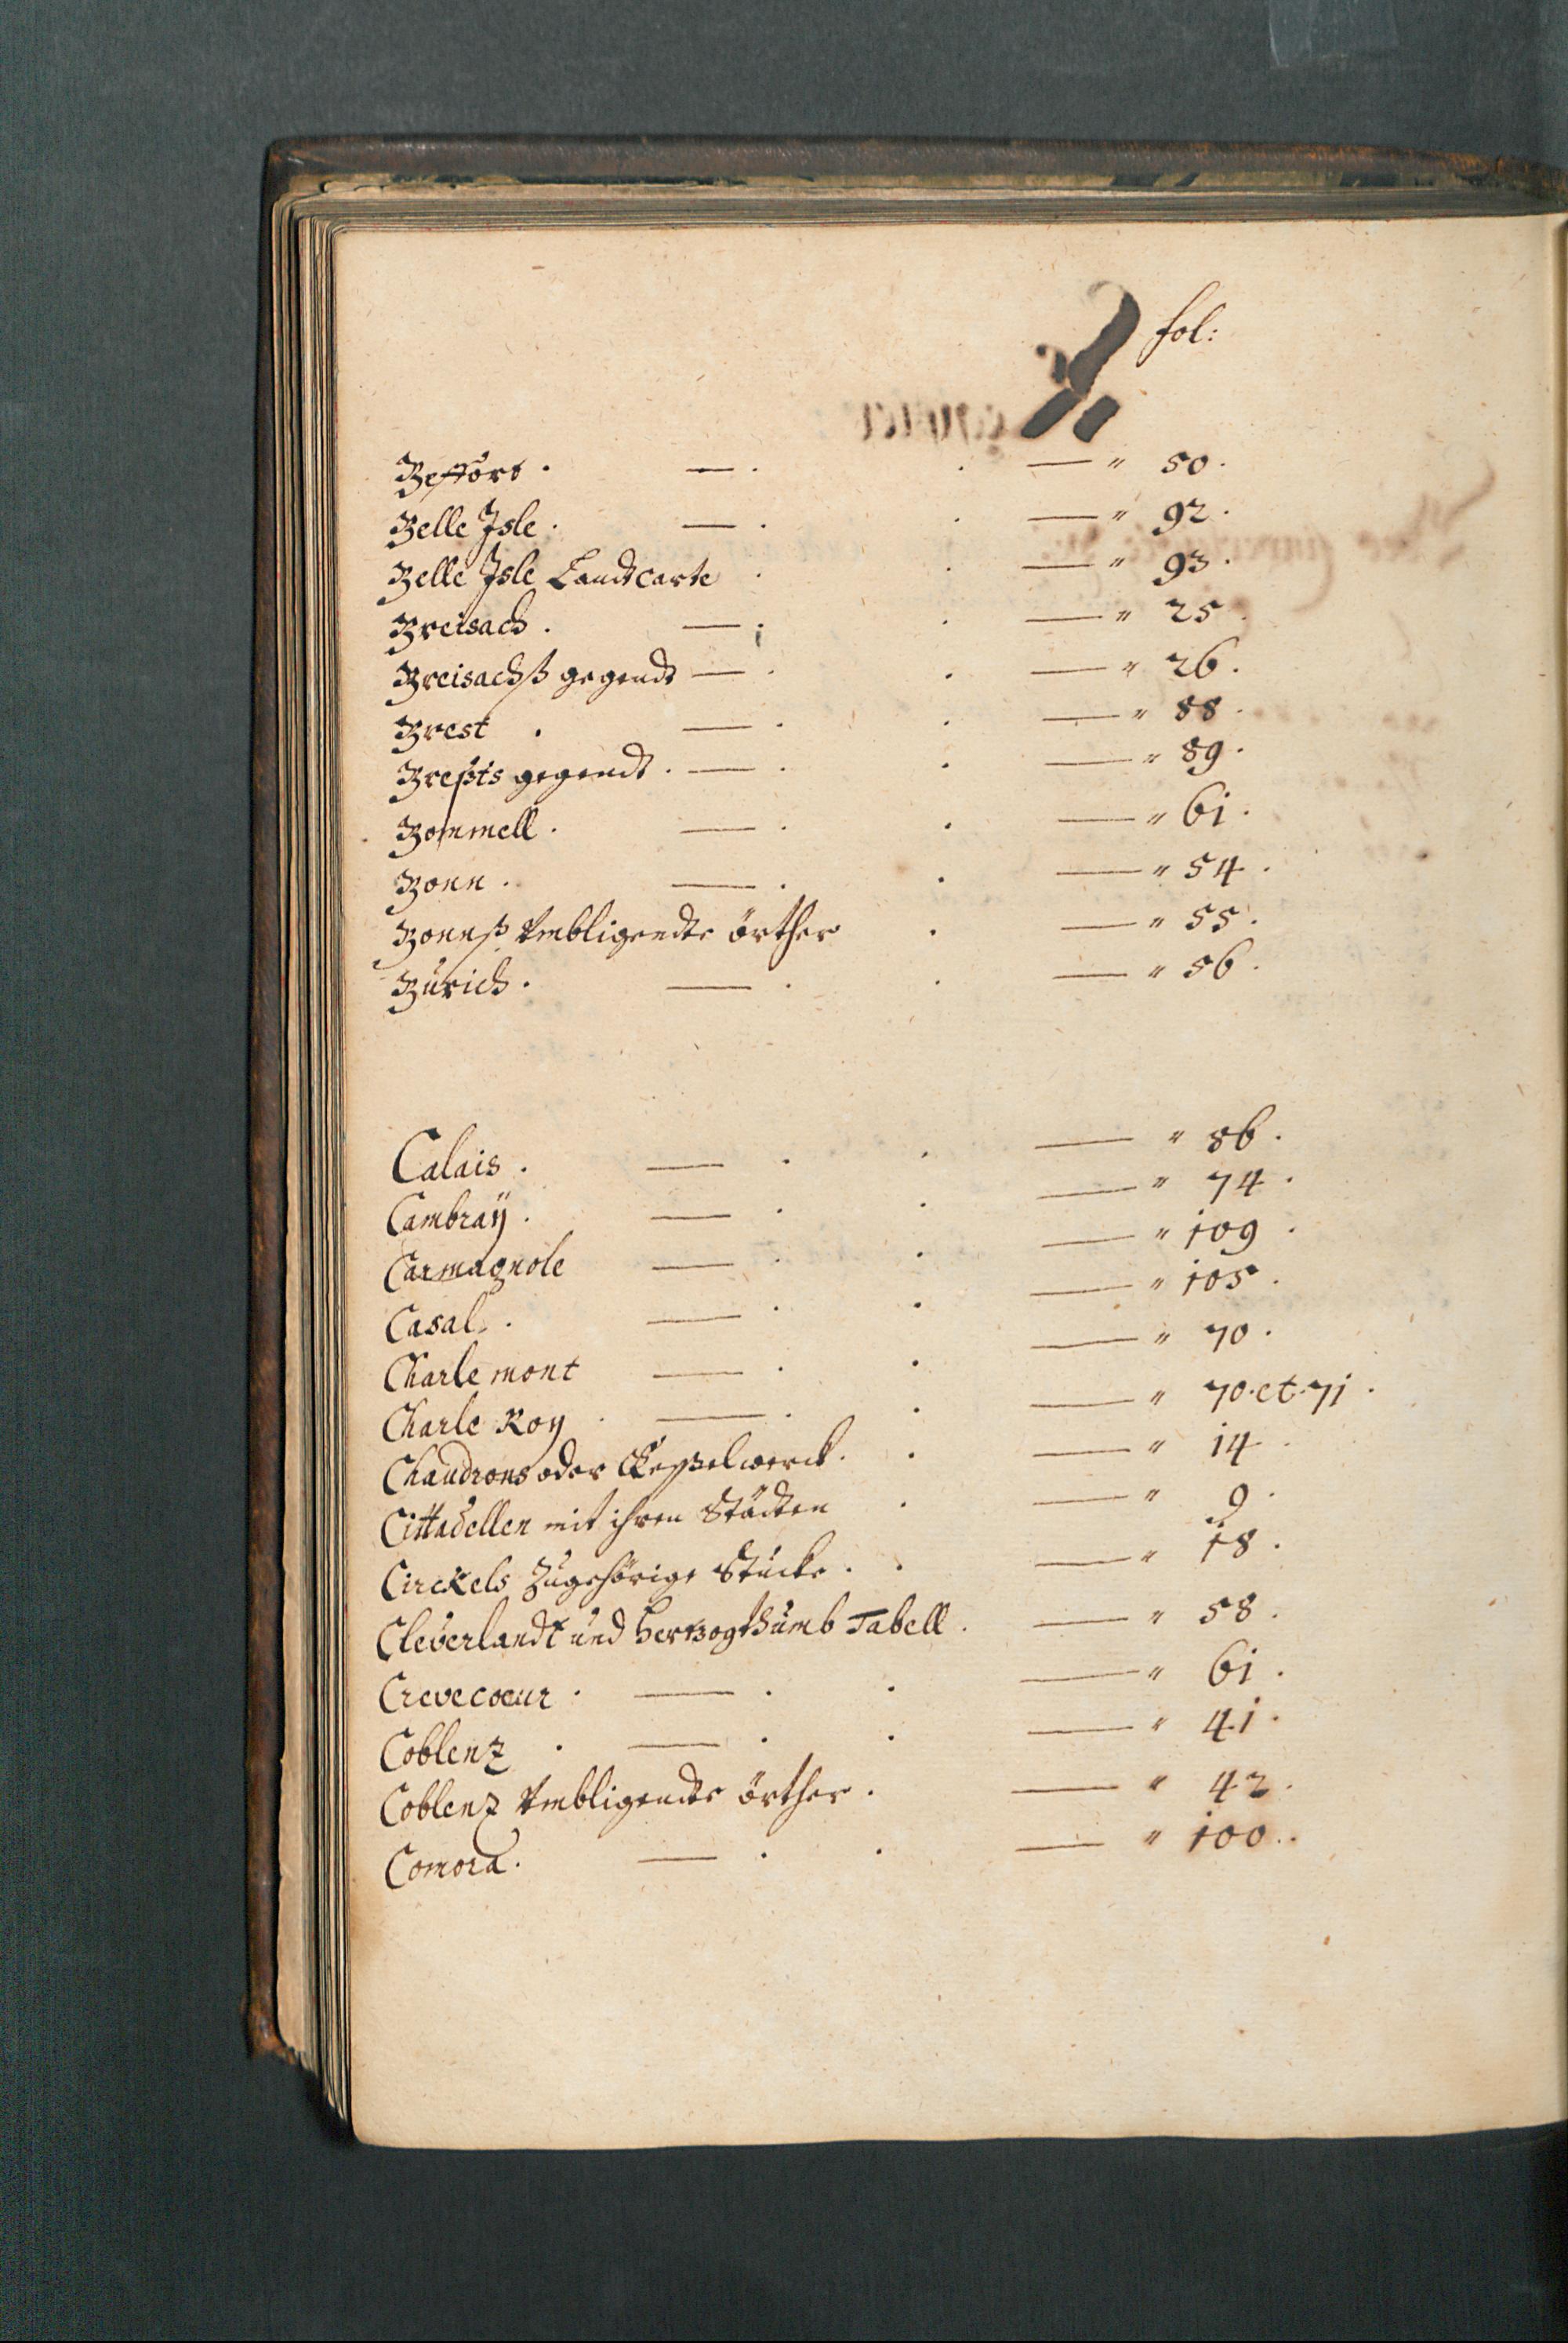 fol:
Beffort . — . . — " 50 .
Belle Isle . — . . — " 92 .
Belle Isle Landtcarte . . — " 93 .
Breisach . — . . — " 25 .
Breisachß gegendt — . . — " 26 .
Brest . — . . — " 88 .
Breßts gegendt . — . . — " 89 .
Bommell . — . . — " 61 .
Bonn . — . . — " 54 .
Bonnß Vmbligendte örther . — " 55 .
Bürich . — . . — " 56 .
Calais . — . . — " 86 .
Cambraÿ . — . . — " 74 .
Carmagnole — . . — " 109 .
Casal . — . . — " 105 .
Charlemont — . . — " 70 .
Charle Roy . — . . — " 70 . et . 71 .
Chaudrons oder Keßelwerck . . — " 14 .
Cittadellen mit ihren Städten . — " 9 .
Circkels Zugehörige Stücke . . — " 18 .
Cleverlandt und Hertzogthumb Tabell . — " 58 .
Crevecoeur . — . . — " 61 .
Coblenz . — . . — " 41 .
Coblenz Vmbligendte örther . — " 42 .
Comora . — . . — " 100 .